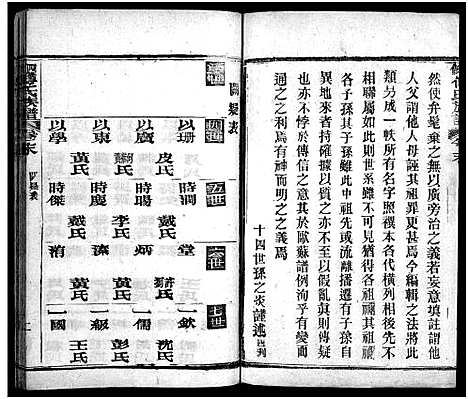 然使弁髦棄之無以廣旁治之義若妄意填註謂他
人父謂他人母誣其祖罪更甚焉今編輯之法將此
類另成一帙所有名字照譔本各代橫列相後先不
相聯屬如此則世系雖不可見猶得各祖其祖焉
各子孫其子孫此中祖先或流離播遷有子孫自
異地來者持確據以質之亦不至以假亂真則傳疑
也而未始非傳信之意其於歐蘇譜例洵乎有變而
通之之利焉有神而明之之義焉
十四世孫之炎謹述
闕疑表
四世
五世
六世
七世
以珊
皮氏
時潤
戴氏
堂
一欽
沈氏
以廣
時暘
李氏
炳
一儒
彭氏
以東
黃氏
時傑
戴氏
藻
黃氏
一級
王氏
以學
黃氏
清
一國